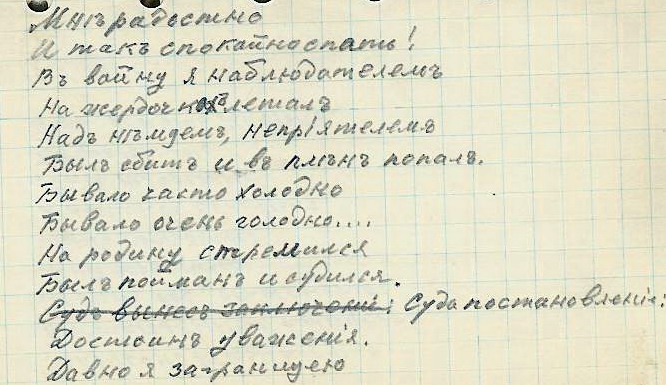 Мнѣ радостно
И такъ спокойно спать!
Въ войну я наблюдателемъ
На жердочкахъ леталъ
Надъ нѣмцемъ, непріятелемъ
Былъ сбитъ и въ плѣнъ попалъ.
Бывало часто холодно
Бывало очень голодно....
На родину стремился
Былъ пойманъ и судился.
Судъ вынесъ заключеніе: Суда постановленіе:
Достоинъ уваженія.
Давно я заграницею